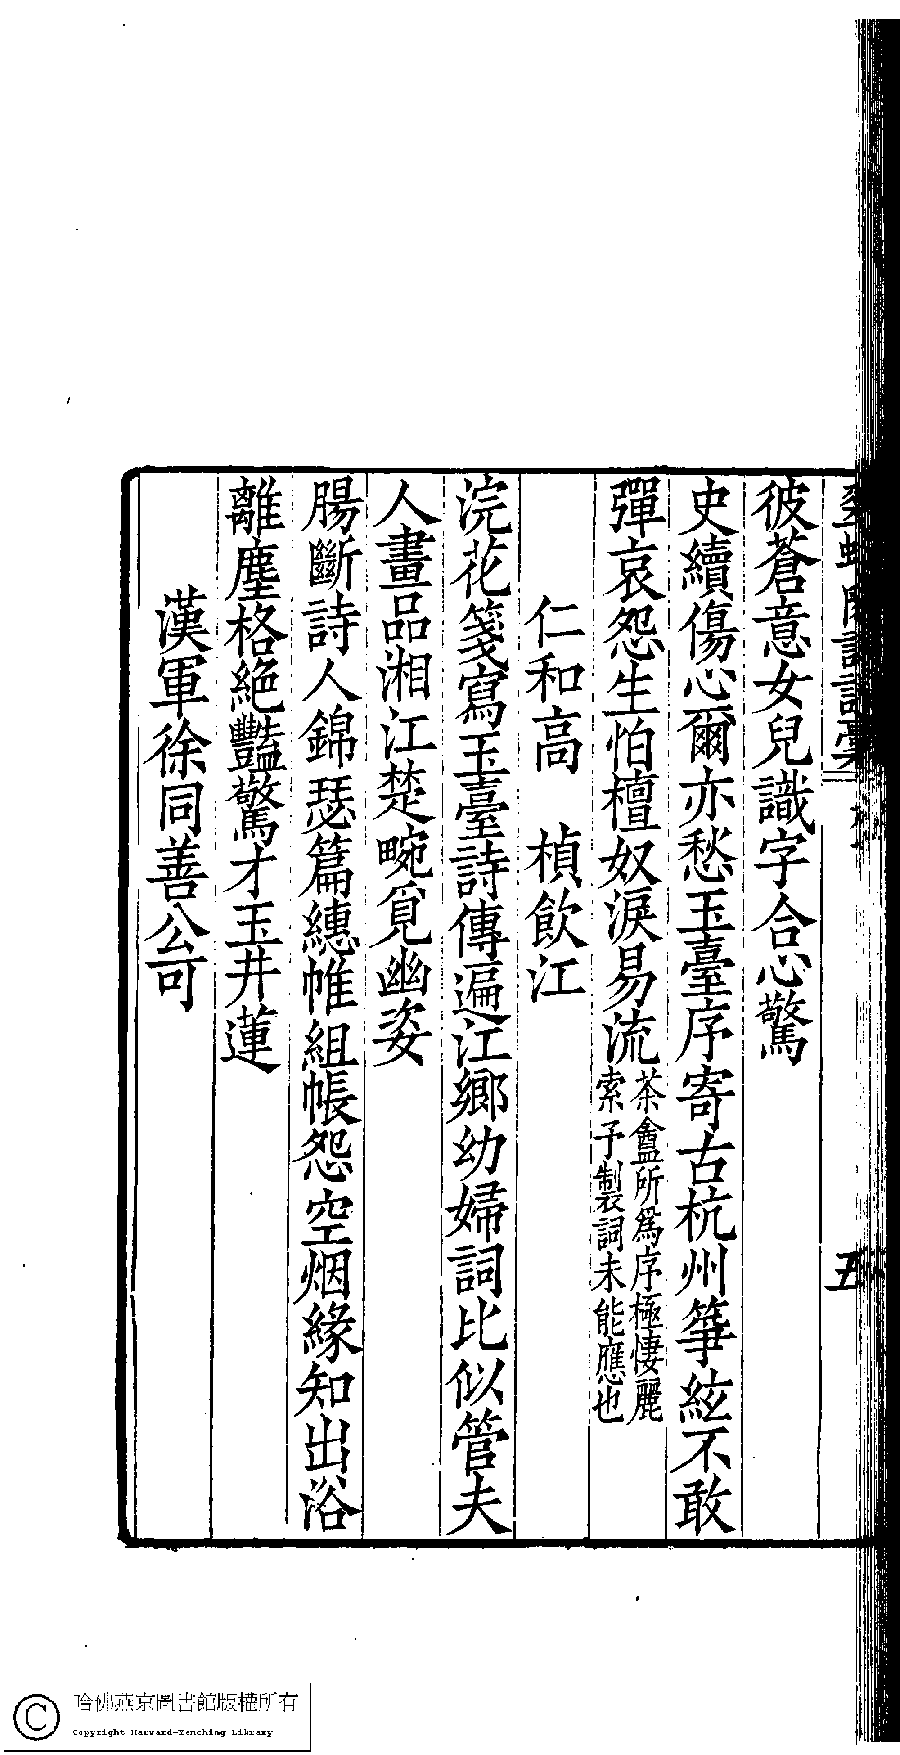 翠螺閣詩詞稾
五
彼蒼意女兒識字合心驚
史續傷心爾亦愁玉臺序寄古杭州箏絃不敢
彈哀怨生怕檀奴淚易流
茶盦所爲序極悽麗
索予製詞未能應也
仁和高　楨飲江
浣花箋寫玉臺詩傳遍江鄉幼婦詞比似管夫
人畫品湘江楚畹覓幽姿
腸斷詩人錦瑟篇繐帷組帳怨空烟緣知出浴
離塵格絕豔驚才玉井蓮
漢軍徐同善公可
哈佛燕京圖書館版權所有
Copyright Harvard-Yenching Library